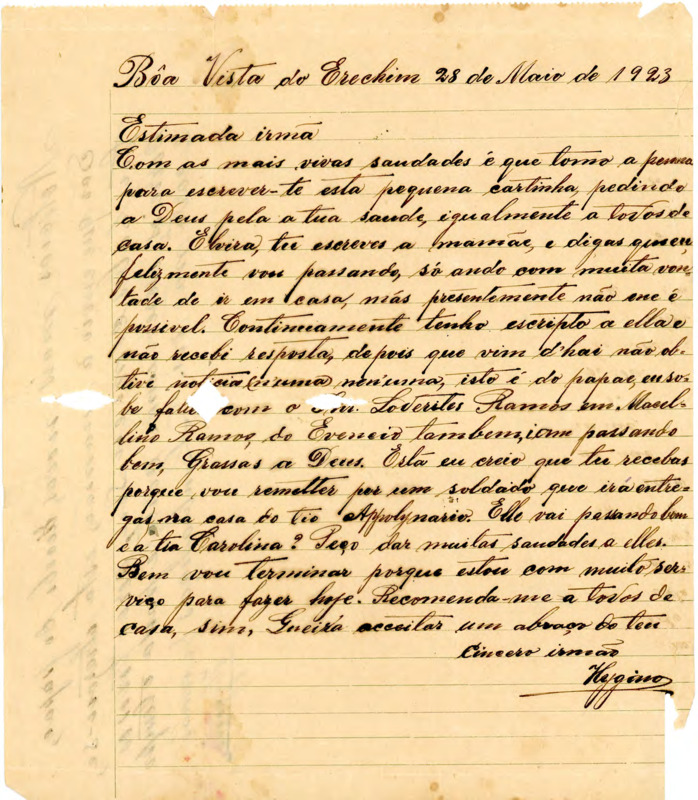 Bôa Vista do Erechim 28 de Maio de 1923
Estimada irmã
Com as mais vivas saudades é que tomo a penna
para escrever-te esta pequena cartinha, pedindo
a Deus pela a tua saude, igualmente a todos de
casa. Elvira, tu escreves a mamãe, e digas que eu
felizmente vou passando, só ando com muita von-
tade de ir em casa, más presentemente não me é
possivel. Continuamente tenho escripto a ella e
não recebi resposta, depois que vim d'hai não ob-
tive noticia (n'uma) nen'uma, isto é do papae, eu so-
be falei com o Snr. Loderites Ramos em Marcel-
lino Ramos, do Evencio tambem, iam passando
bem, Grassas a Deus. Está eu creio que tu recebas
porque vou remetter por um soldado que irá entre-
gas na casa do tio Appolynario. Elle vai passando bem
e a tia Carolina? Peço dar muitas saudades a elles.
Bem vou terminar porque estou com muito ser-
viço para fazer hoje. Recomenda-me a todos de
casa, sim, Queira acceitar um abraço do teu
cincero irmão
Hygino